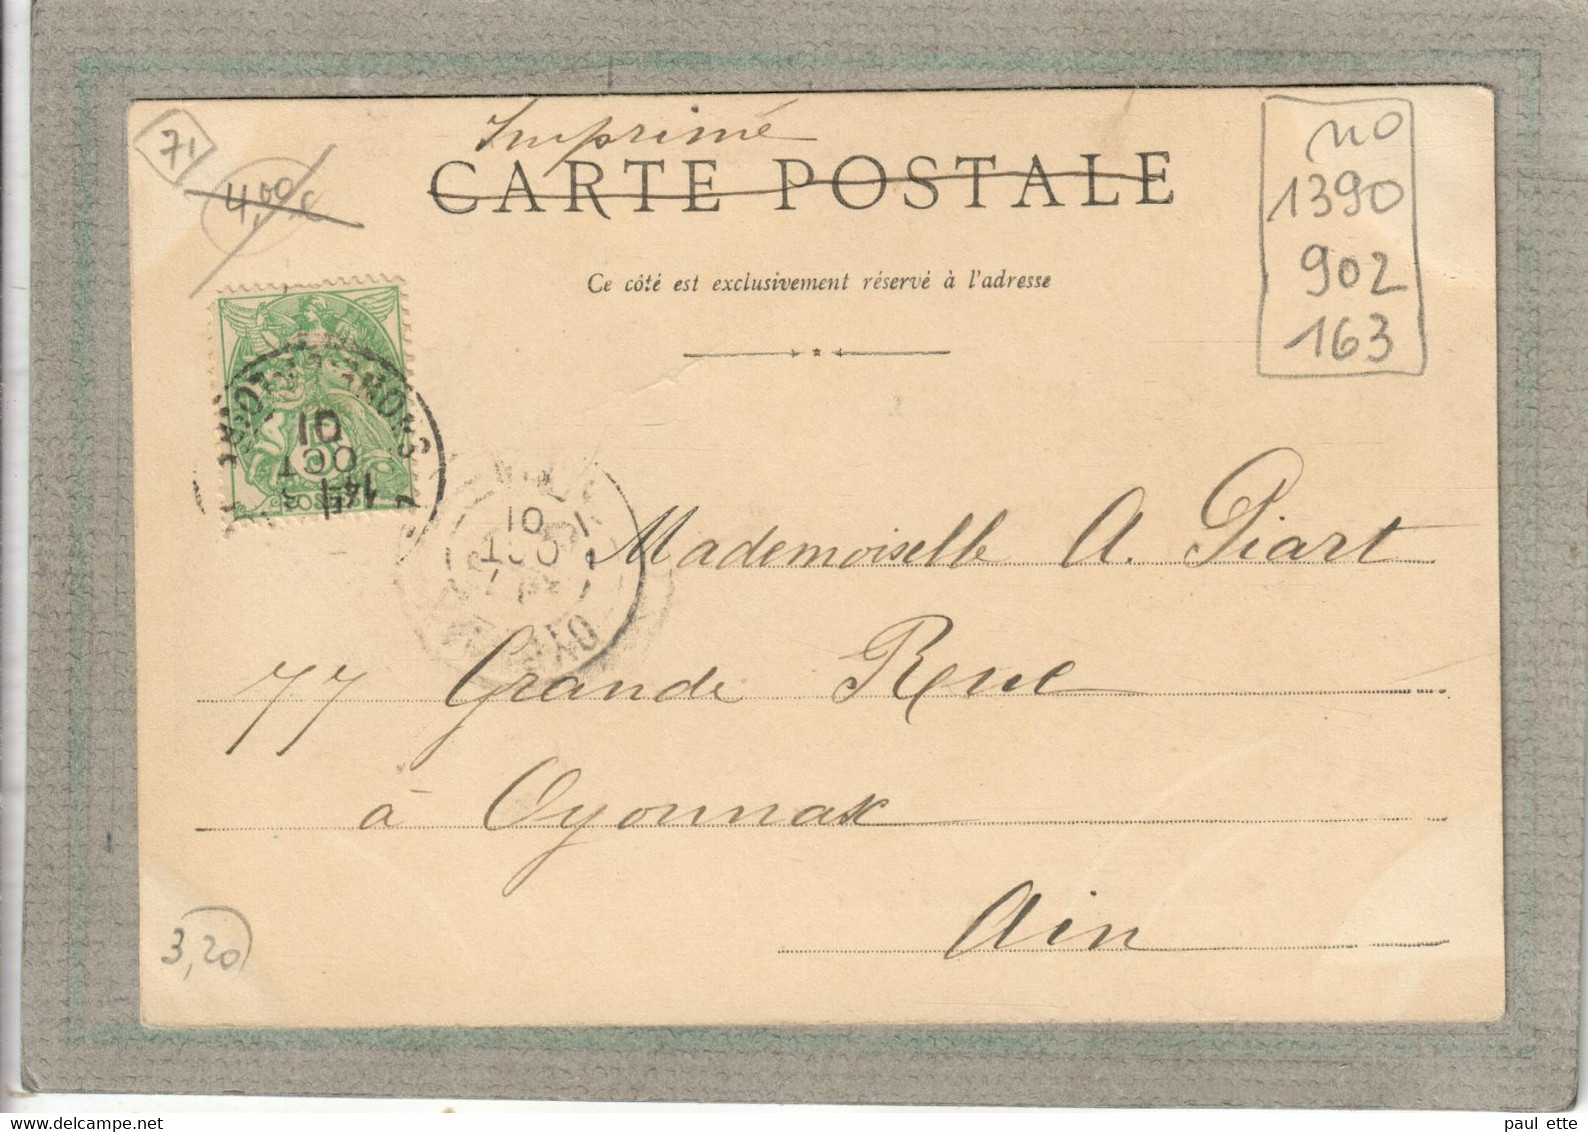 71
4,00 €
Imprimé
CARTE POSTALE
Ce côté est exclusivement réservé à l'adresse
no
1390
902
163
01
OCT
14
01
OCT
OY
Mademoiselle A. Piart
77 Grande Rue
à Oyonnax
Ain
3,20
paul ette